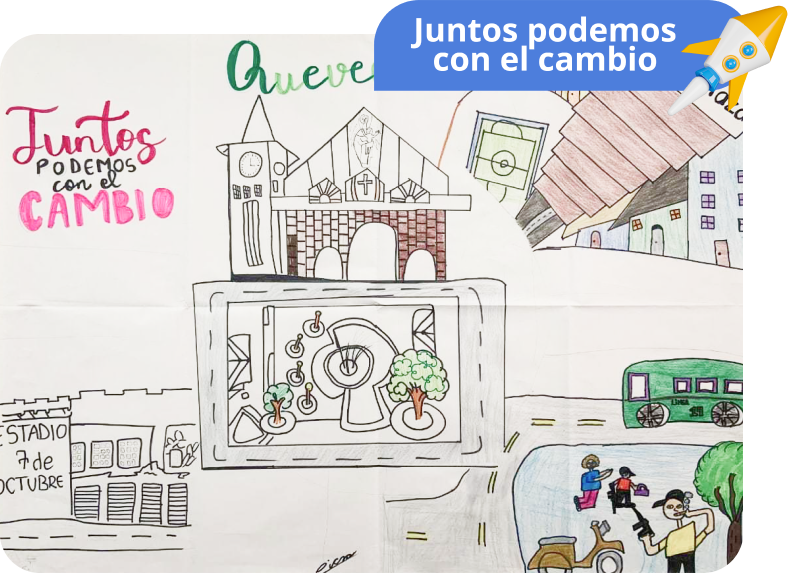 Juntos podemos
con el cambio
Queve
Juntos
PODEMOS
con el
CAMBIO
ESTADIO
7 de
OCTUBRE
LINEA